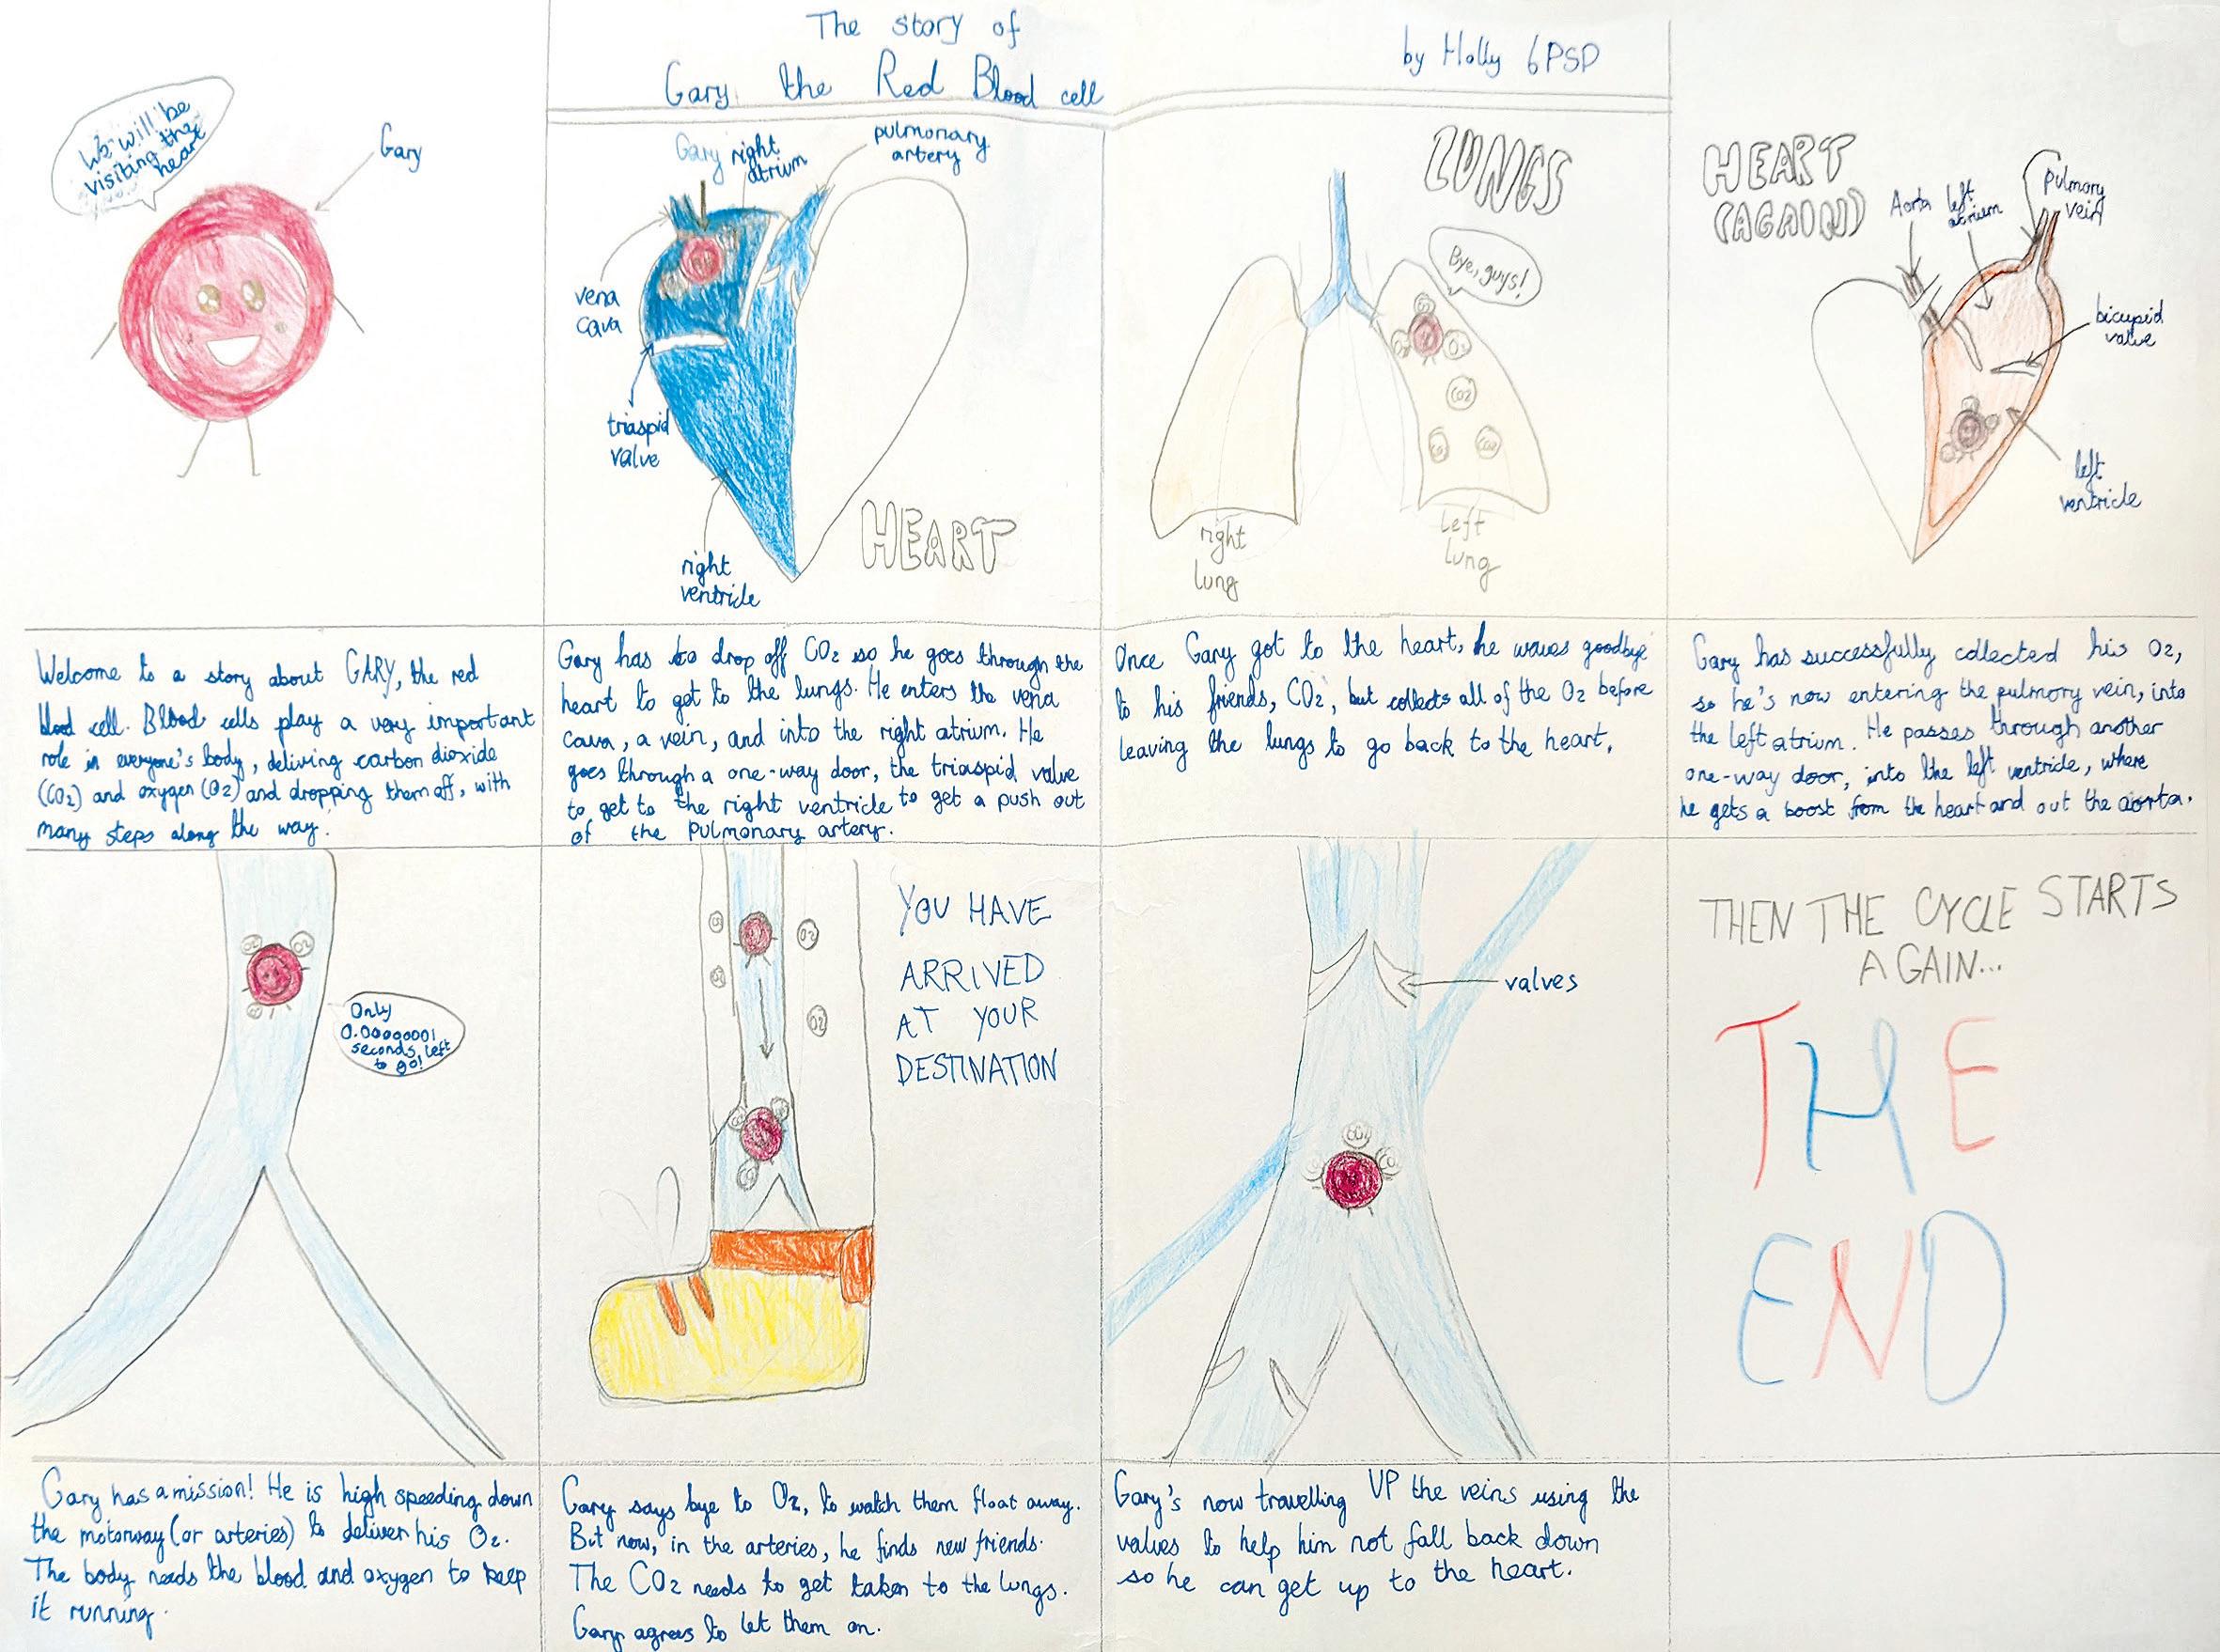 The story of
Gary the Red Blood cell
by Holly 6PSP
We will be
visiting the
heart
Gary
Welcome to a story about GARY, the red
blood cell. Blood cells play a very important
role in everyone's body, deliving carbon dioxide
(CO2) and oxygen (O2) and dropping them off, with
many steps along the way.
Gary
right
atrium
pulmonary
artery
vena
cava
triaspid
valve
right
ventricle
HEART
Gary has to drop off CO2 so he goes through the
heart to get to the lungs. He enters the vena
cava, a vein, and into the right atrium. He
goes through a one-way door, the triaspid valve
to get to the right ventricle to get a push out
of the pulmonary artery.
LUNGS
Bye, guys!
O2
CO2
right
lung
left
lung
Once Gary got to the heart, he waves goodbye
to his friends, CO2, but collects all of the O2 before
leaving the lungs to go back to the heart.
HEART
(AGAIN)
Aorta
left
atrium
pulmory
vein
bicupid
valve
left
ventricle
Gary has successfully collected his O2,
so he's now entering the pulmory vein, into
the left atrium. He passes through another
one-way door, into the left ventricle, where
he gets a boost from the heart and out the aorta.
O2
O2
Only
0.00000001
seconds left
to go!
Gary has a mission! He is high speeding down
the motorway (or arteries) to deliver his O2.
The body needs the blood and oxygen to keep
it running.
O2
O2
YOU HAVE
ARRIVED
AT YOUR
DESTINATION
Gary says bye to O2, to watch them float away.
But now, in the arteries, he finds new friends.
The CO2 needs to get taken to the lungs.
Gary agrees to let them on.
valves
CO2
Gary's now travelling UP the veins using the
valves to help him not fall back down
so he can get up to the heart.
THEN THE CYCLE STARTS
AGAIN...
THE
END